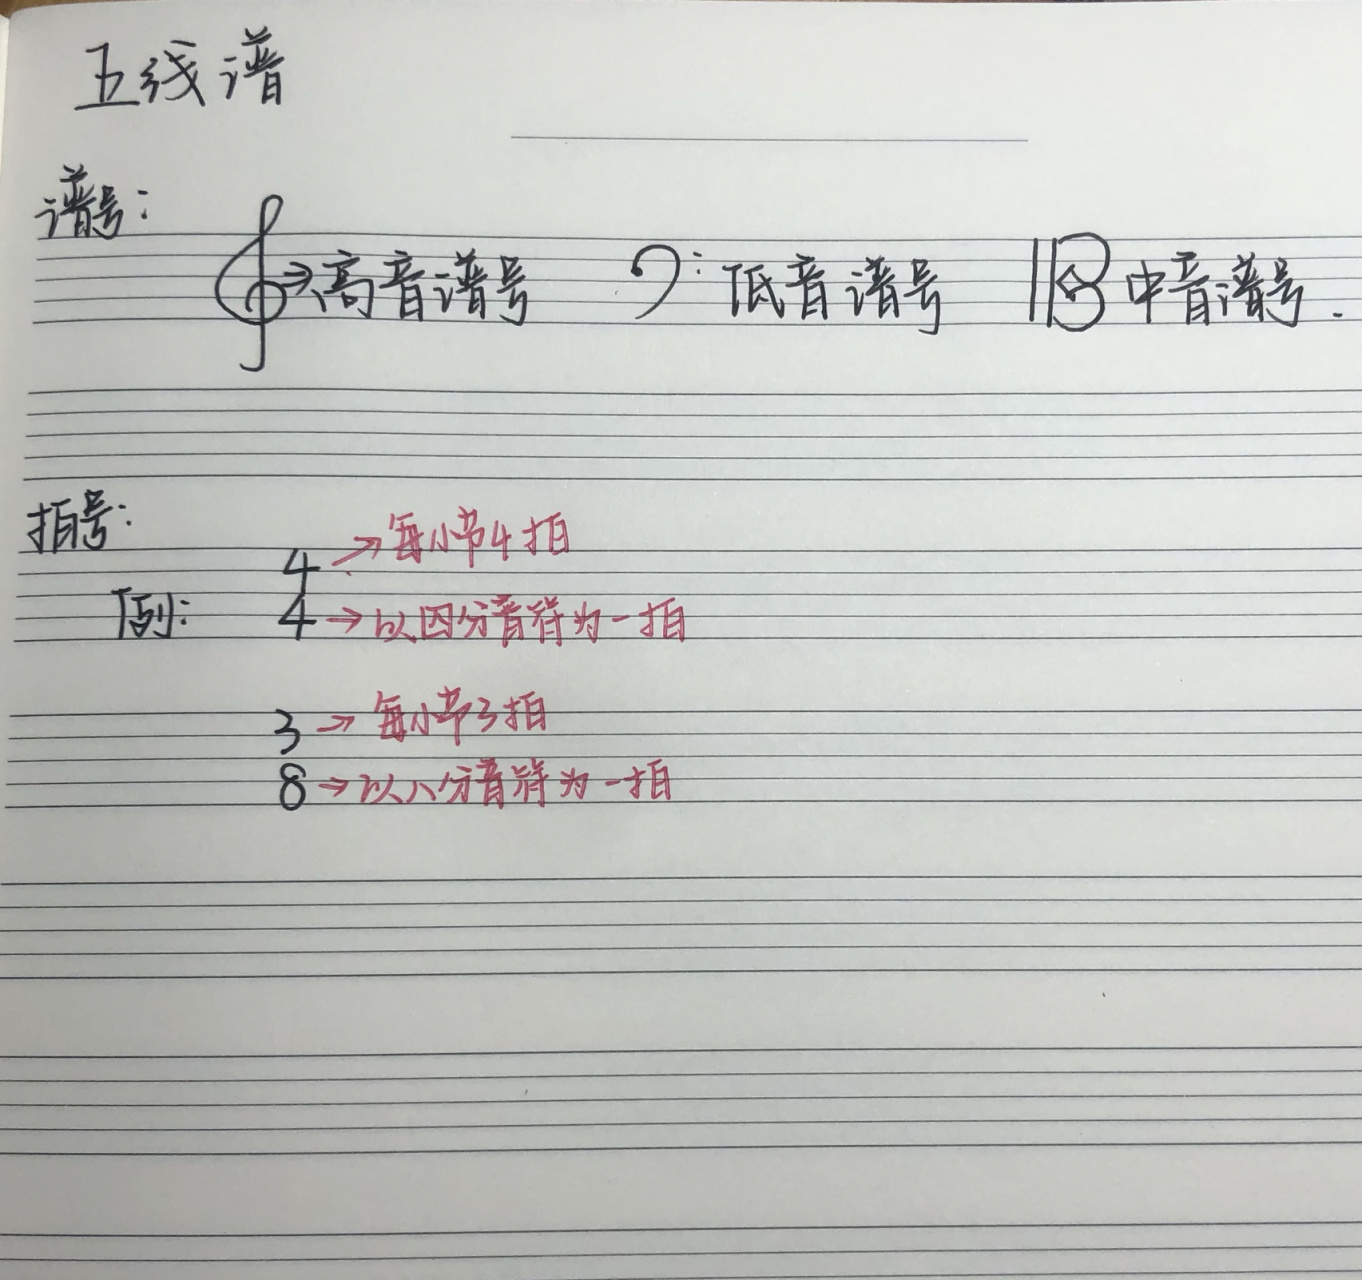 五线谱
谱号:
高音谱号 低音谱号 中音谱号.
拍号:
4 → 每小节4拍
例: 4 → 以四分音符为一拍
3 → 每小节3拍
8 → 以八分音符为一拍